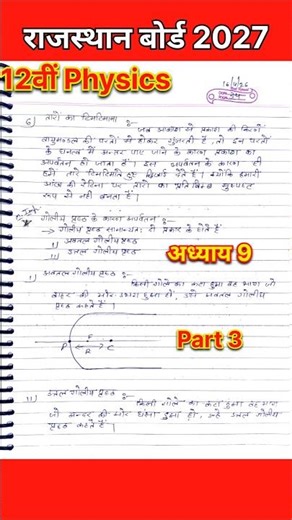 राजस्थान बोर्ड 2027
12वीं Physics
6) तारों का टिमटिमाना :-
जब आकाश से प्रकाश की किरणें
वायुमण्डल की परतों से होकर गुजरती है, तो इन परतों
के घनत्व में अन्तर पाए जाने के कारण प्रकाश का
अपवर्तन हो जाता है। इस अपवर्तन के कारण ही
हमें तारे टिमटिमाते हुए दिखाई देते हैं। क्योंकि हमारी
आंख की रेटिना पर तारों का प्रतिबिम्ब
रूप से नही बनता है।
गोलीय पृष्ठ के कारण अपवर्तन :-
→ गोलीय पृष्ठ सामान्यतः दो प्रकार के होते हैं
i) अवतल गोलीय पृष्ठ
ii) उत्तल गोलीय पृष्ठ
अध्याय 9
i) अवतल गोलीय पृष्ठ :-
किसी गोले का कटा हुआ वह भाग जो
बाहर की ओर उभरा हुआ हो, उसे अवतल गोलीय
पृष्ठ कहते हैं।
Part 3
P F C
R
ii) उत्तल गोलीय पृष्ठ :-
किसी गोले का कटा हुआ वह भाग
जो अन्दर की ओर धंसा हुआ हो, उसे उत्तल गोलीय
पृष्ठ कहते हैं।